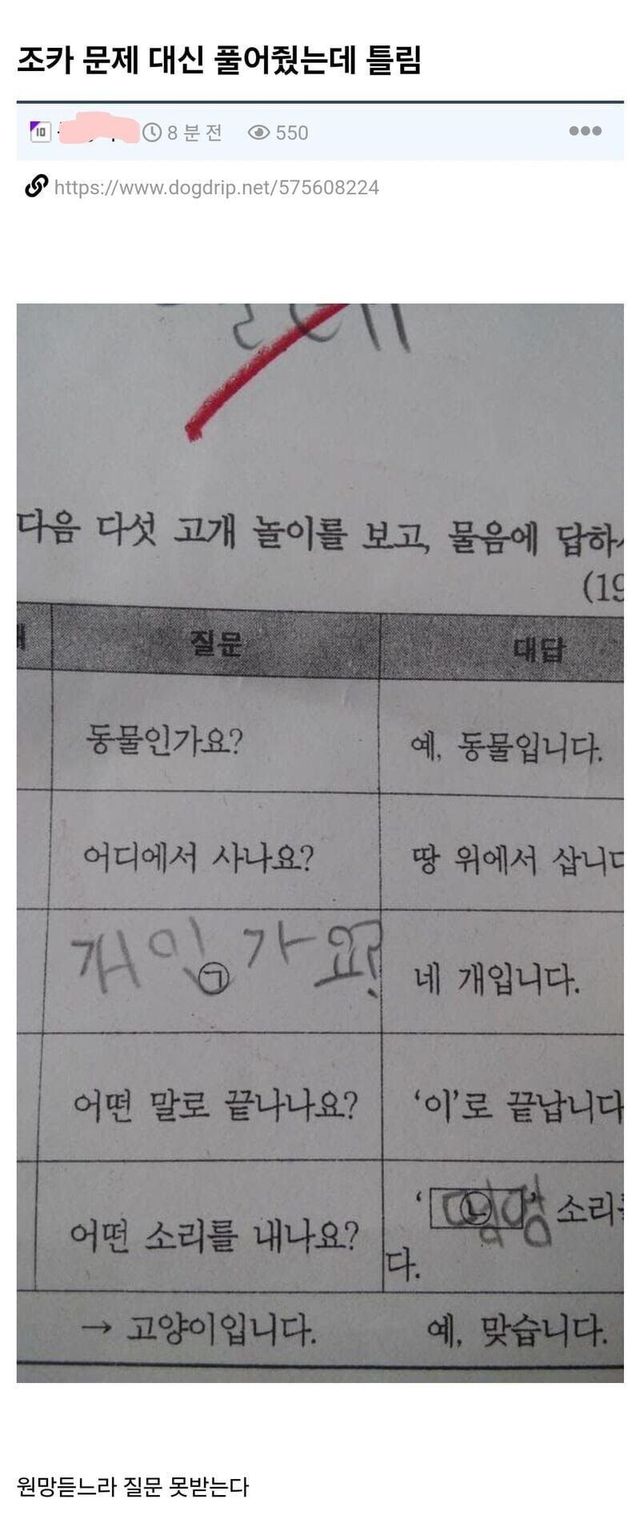 조카 문제 대신 풀어줬는데 틀림
8 분 전 550
https://www.dogdrip.net/575608224
다음 다섯 고개 놀이를 보고, 물음에 답하
(19
질문 대답
동물인가요? 예, 동물입니다.
어디에서 사나요? 땅 위에서 삽니다
개인가요?
㉠
네 개입니다.
어떤 말로 끝나나요? ‘이’로 끝납니다
어떤 소리를 내나요? ‘㉡’ 소리를
멍멍
다.
→ 고양이입니다. 예, 맞습니다.
원망듣느라 질문 못받는다